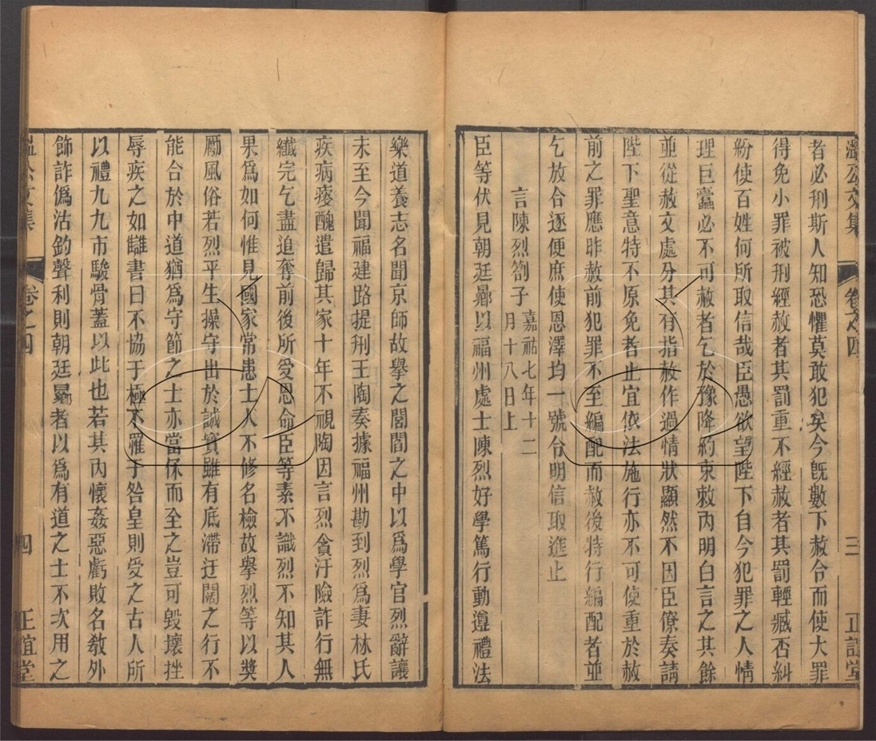 溫公文集 卷之四 三 正誼堂
者必刑斯人知恐懼莫敢犯矣今旣數下赦令而使大罪
得免小罪被刑經赦者其罰重不經赦者其罰輕臧否糾
紛使百姓何所取信哉臣愚欲望陛下自今犯罪之人情
理巨蠹必不可赦者乞於豫降約束敕內明白言之其餘
並從赦文處分其有指赦作過情狀顯然不因臣僚奏請
陛下聖意特不原免者止宜依法施行亦不可使重於赦
前之罪應昨赦前犯罪不至編配而赦後特行編配者並
乞放令逐便庶使恩澤均一號令明信取進止
言陳烈劄子 嘉祐七年十二
月十八日上
臣等伏見朝廷曏以福州處士陳烈好學篤行動遵禮法
樂道養志名聞京師故擧之閭閻之中以爲學官烈辭讓
未至今聞福建路提刑王陶奏據福州勘到烈爲妻林氏
疾病瘦醜遣歸其家十年不視陶因言烈貪汙險詐行無
纖完乞盡追奪前後所受恩命臣等素不識烈不知其人
果爲如何惟見國家常患士人不修名檢故擧烈等以奬
勵風俗若烈平生操守出於誠實雖有底滯迂闊之行不
能合於中道猶爲守節之士亦當保而全之豈可毀壞挫
辱疾之如讎書曰不協于極不罹于咎皇則受之古人所
以禮九九市駿骨蓋以此也若其內懷姦惡虧敗名敎外
飾詐僞沽釣聲利則朝廷曏者以爲有道之士不次用之
溫公文集 卷之四 四 正誼堂